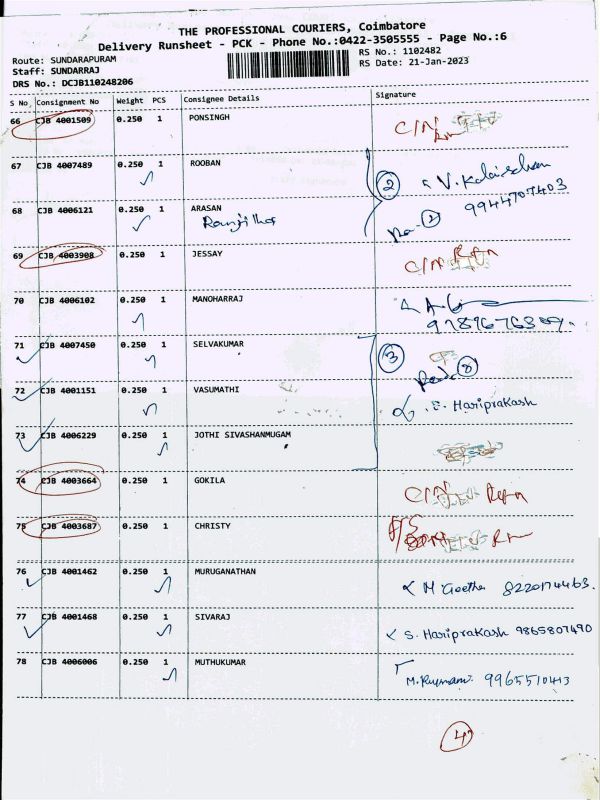 THE PROFESSIONAL COURIERS, Coimbatore
Delivery Runsheet - PCK - Phone No.:0422-3505555 - Page No.:6
Route: SUNDARAPURAM
RS No.: 1102482
Staff: SUNDARRAJ
RS Date: 21-Jan-2023
DRS No.: DCJB110248206
S No Consignment No Weight PCS Consignee Details Signature
66 CJB 4001509 0.250 1 PONSINGH C/N
67 CJB 4007489 0.250 1 ROOBAN
2
9944707403
68 CJB 4006121 0.250 1 ARASAN
69 CJB 4003908 0.250 1 JESSAY C/N
70 CJB 4006102 0.250 1 MANOHARRAJ
71 CJB 4007450 0.250 1 SELVAKUMAR
3
8
72 CJB 4001151 0.250 1 VASUMATHI E. Hariprakash
73 CJB 4006229 0.250 1 JOTHI SIVASHANMUGAM
74 CJB 4003664 0.250 1 GOKILA C/N
75 CJB 4003687 0.250 1 CHRISTY
76 CJB 4001462 0.250 1 MURUGANATHAN M Geetha 8220174463.
77 CJB 4001468 0.250 1 SIVARAJ S. Hariprakash 9865807490
78 CJB 4006006 0.250 1 MUTHUKUMAR 9965510413
4